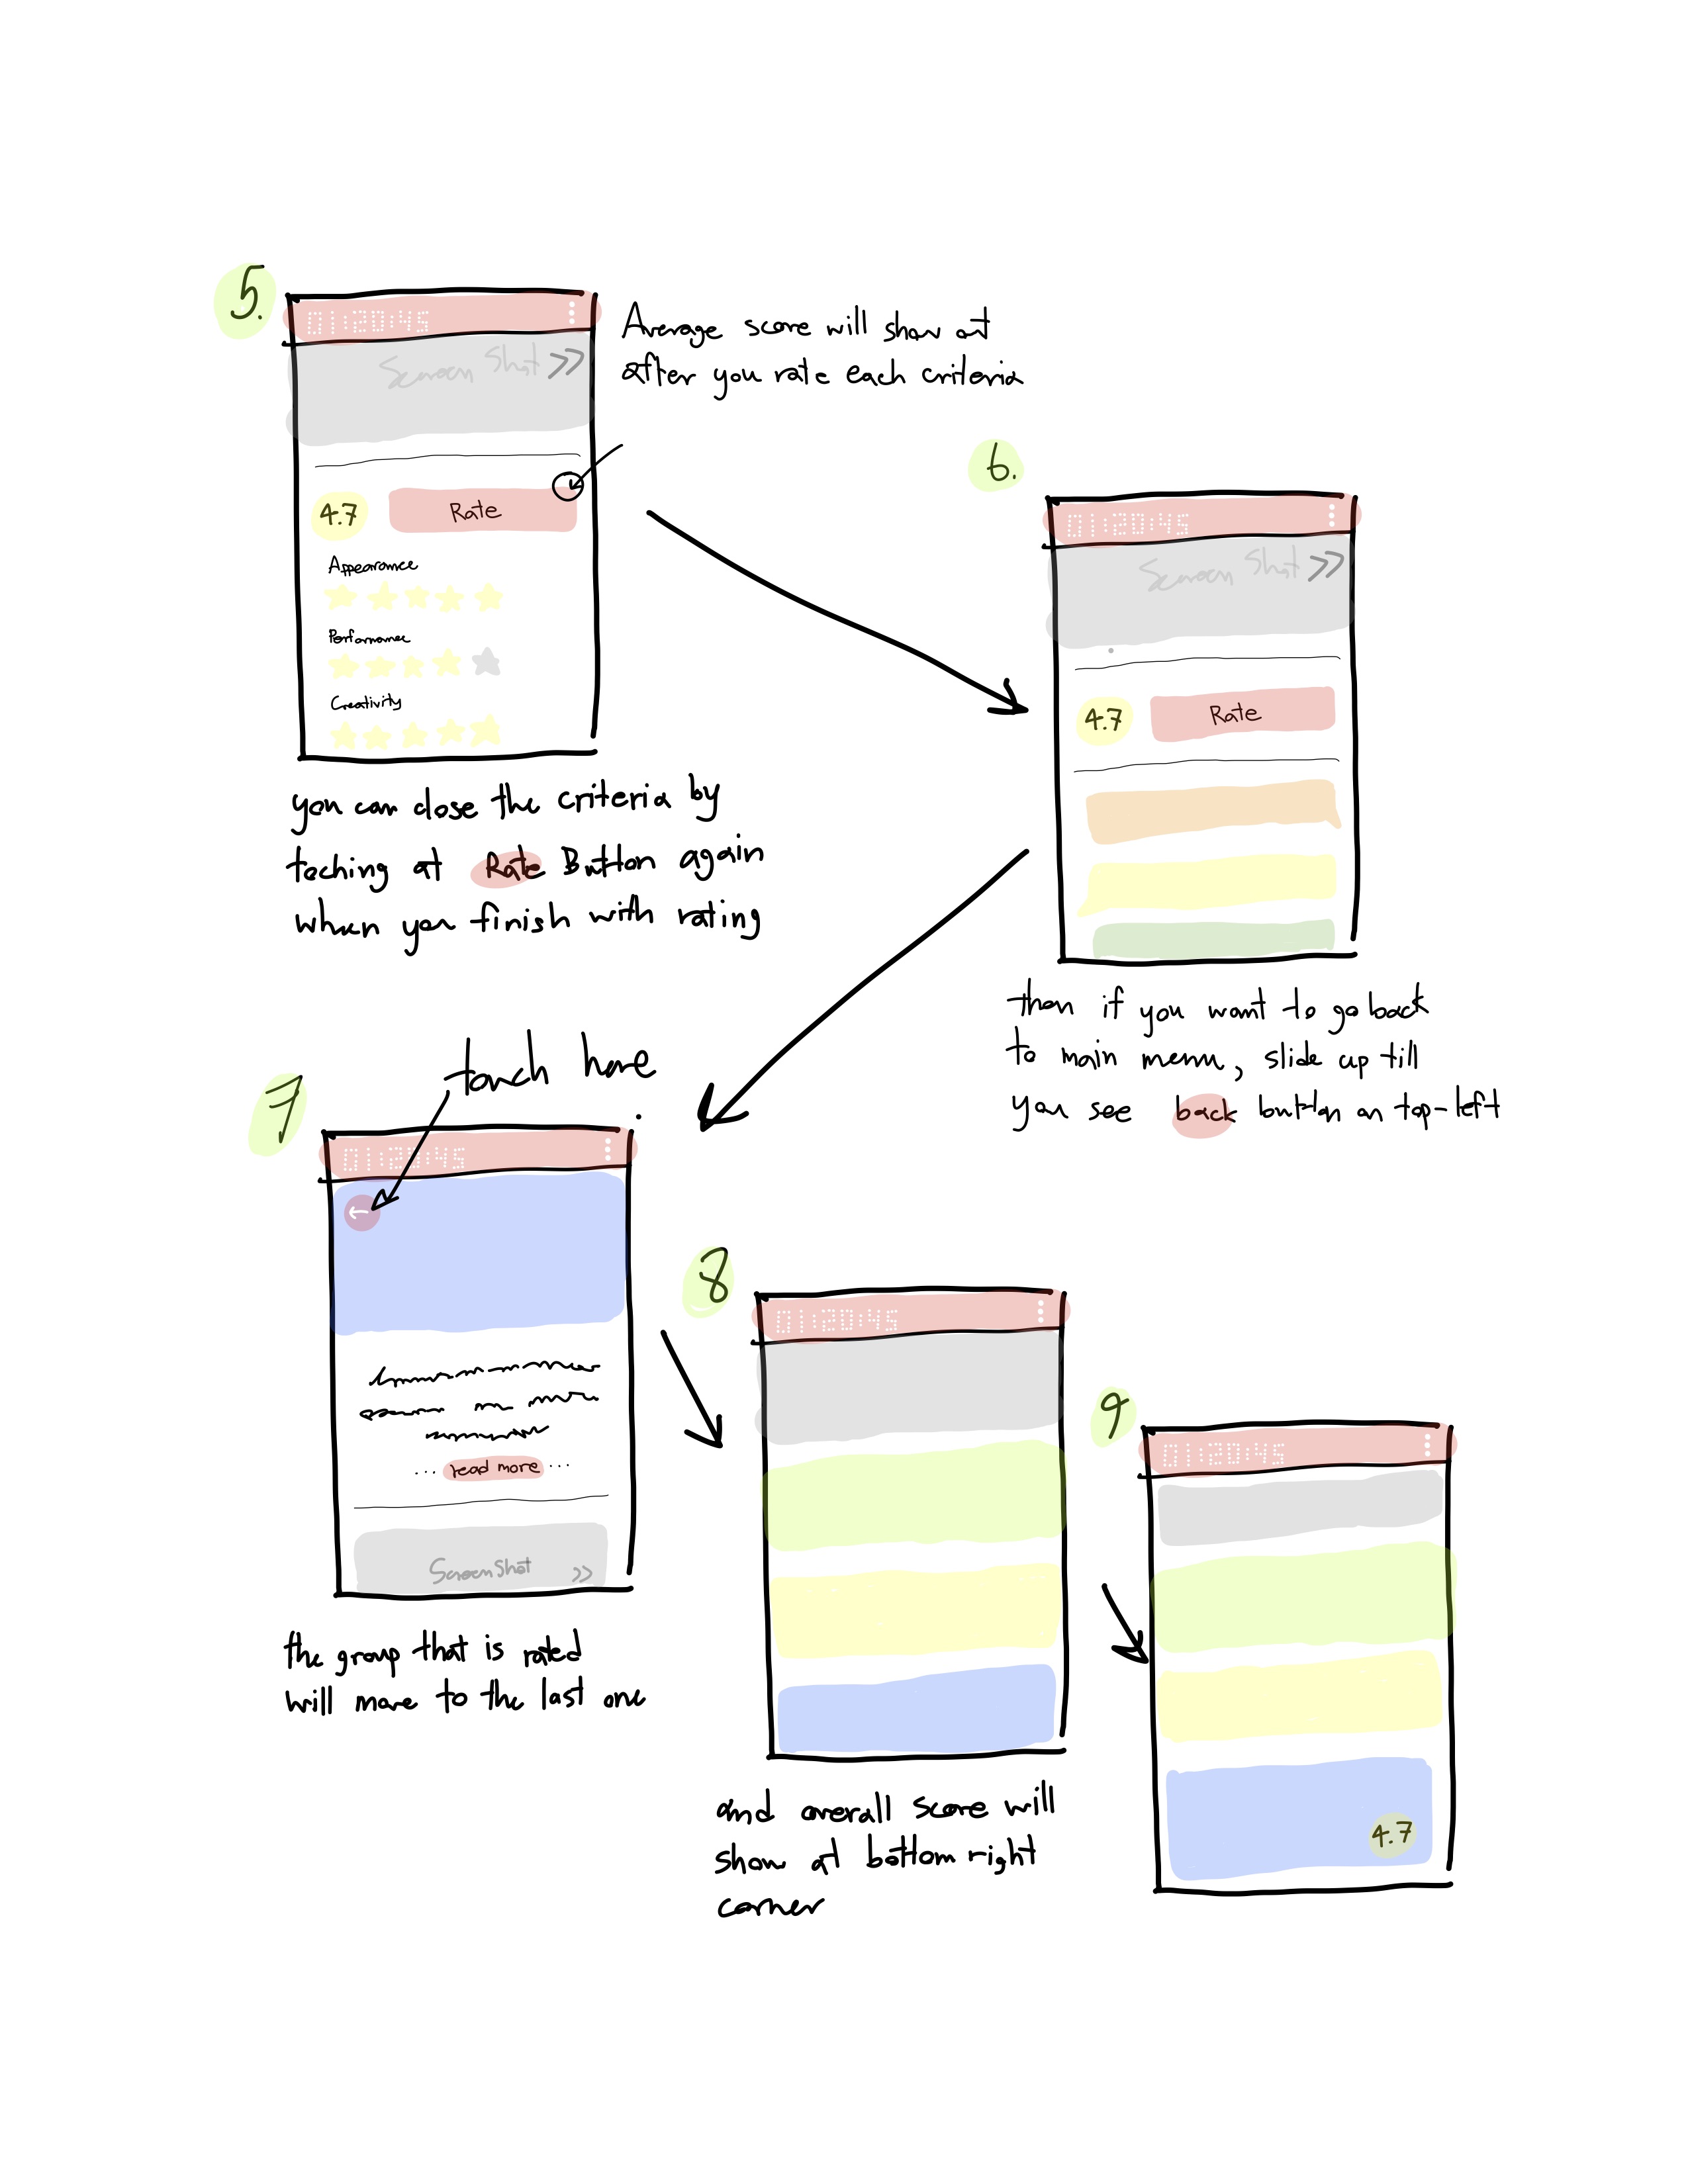 5.
01:20:45
Screen Shot >>
Average score will show at
after you rate each criteria
4.7
Rate
Appearance
Performance
Creativity
you can close the criteria by
toching at Rate Button again
when you finish with rating
6.
01:20:45
Screen Shot >>
4.7
Rate
then if you want to go back
to main menu, slide up till
you see back button on top-left
7
touch here
01:20:45
←
... read more ...
Screen Shot >>
the group that is rated
will move to the last one
8
01:20:45
and overall score will
show at bottom right
corner
9
01:20:45
4.7